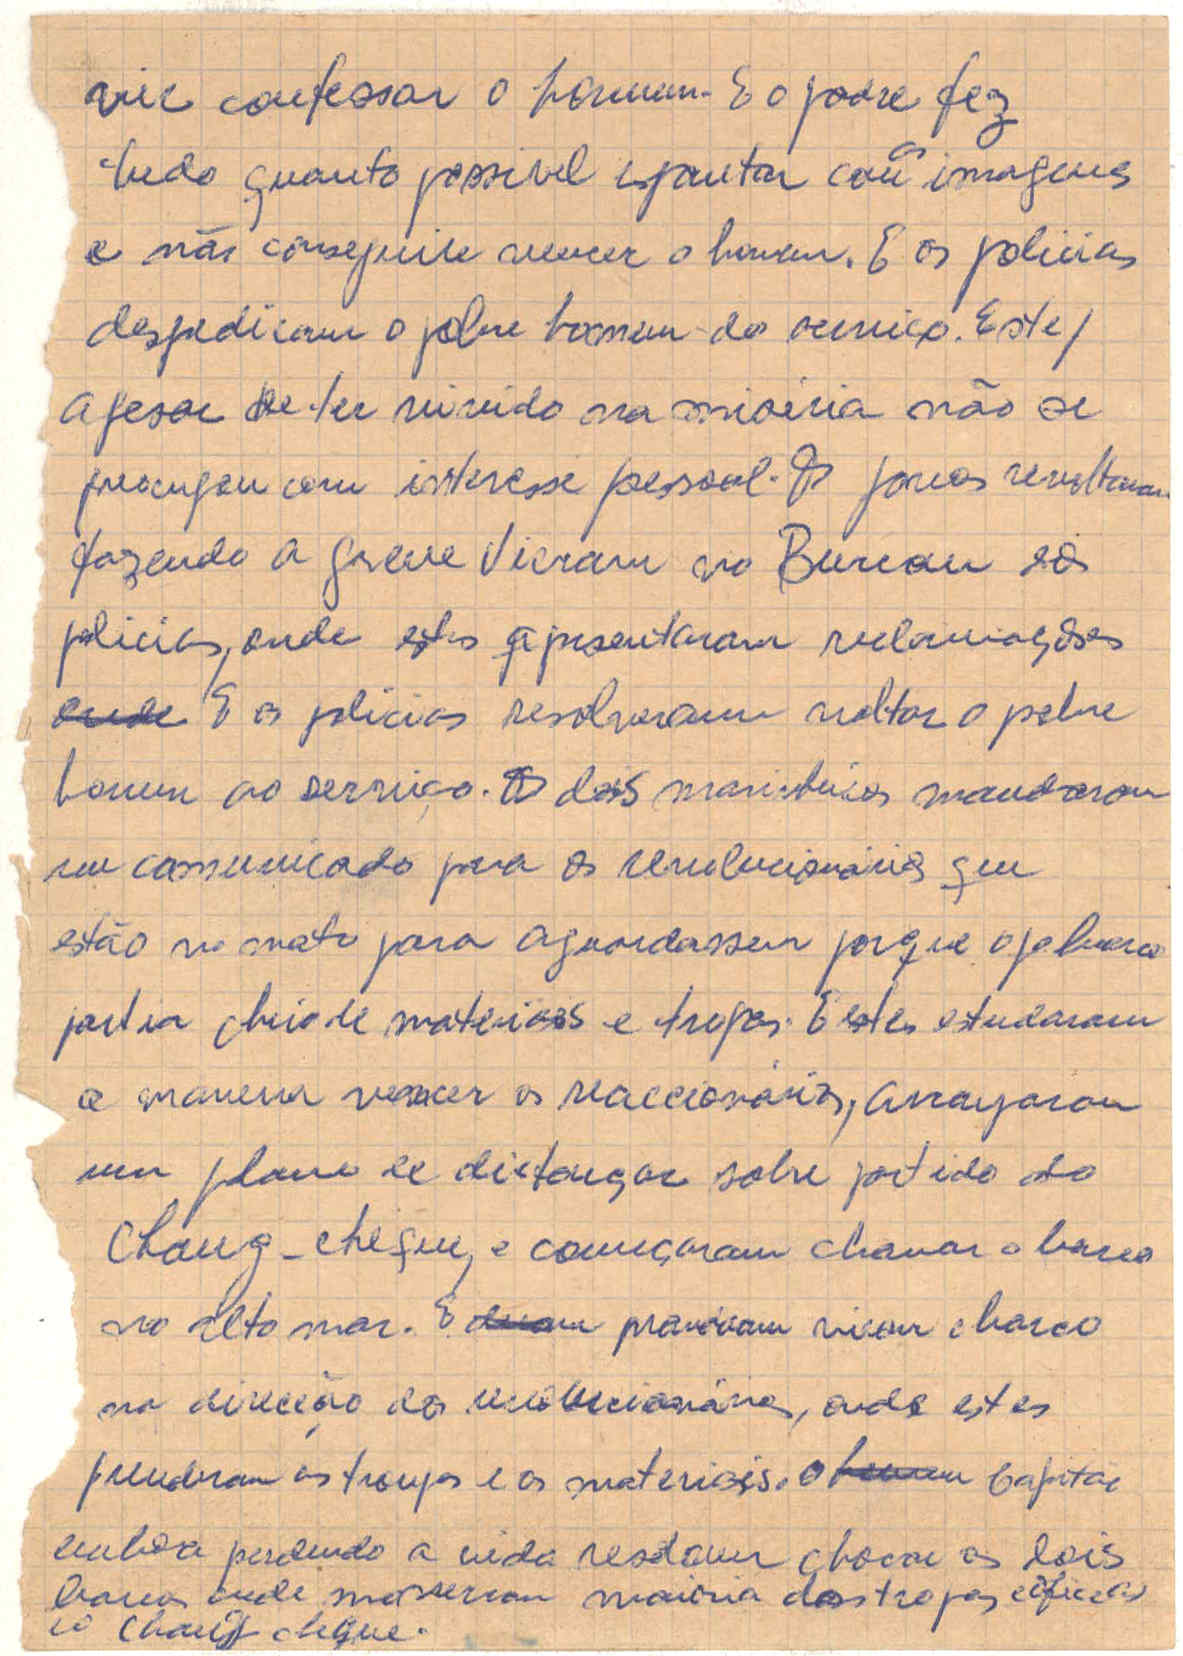 vir confessar o homem. E o padre fez
tudo quanto possivel espantar com as imagens
e não conseguiu vencer o homem. E os policias
despediram o pobre homem do serviço. Este,
apesar de ter vivido na miséria não se
preocupou com interesse pessoal. Os povos revoltaram
fazendo a greve vieram no Bureau dos
policias, onde estes apresentaram reclamações
onde E os policias resolveram voltar o pobre
homem ao serviço. Os dois marinheiros mandaram
um comunicado para os revolucionários que
estão no mato para aguardassem porque o barco
partia cheio de materiais e tropas. E estes estudaram
a maneira vencer os reaccionários, arranjaram
um plano de disfarçar sobre partido do
Chang-cheque, e começaram chamar o barco
no alto mar. E viram o barco
na direcção dos revolucionários, onde estes
prenderam as tropas e os materiais. O homem Capitão
embora perdendo a vida chocar os dois
barcos onde morreram maioria das tropas
do Chang cheque.